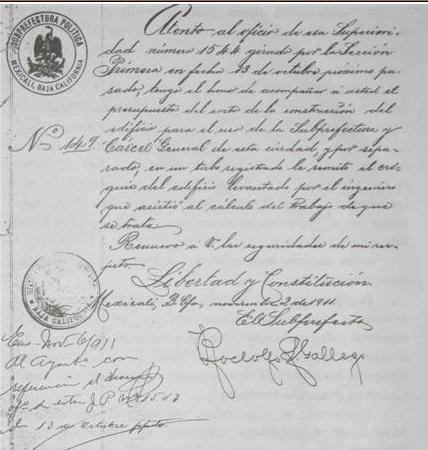 SUBPREFECTURA POLITICA
MEXICALI, BAJA CALIFORNIA
Atento al oficio de esa Superiori-
dad número 1544 girado por la Sección
Primera en fecha 13 de octubre próximo pa-
sado, tengo el honor de acompañar á usted el
presupuesto del costo de la construcción del
edificio para el uso de la Subprefectura y
Nº 149.
Cárcel General de esta ciudad, y por sepa-
rado, en un tubo registrado le remito el cro-
quis del edificio levantado por el ingeniero
que asistió al cálculo del trabajo de que
se trata.
Renuevo á V. las seguridades de mi res-
peto.
Libertad y Constitución.
Mexicali, B. Cfa, noviembre 2 de 1911.
El Subprefecto,
Rodolfo L. Gallego
BAJA CALIFORNIA
Nov 6/911
Al con
referencia al
de este J. P. 1543
de 13 de Octubre ppdo.